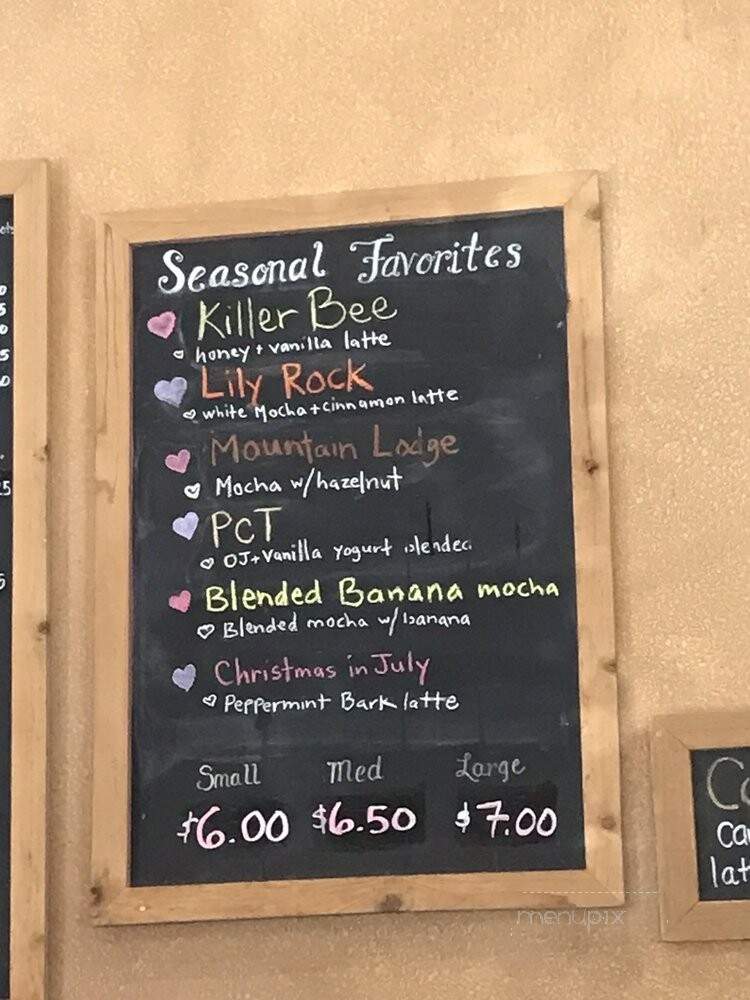 Seasonal Favorites
Killer Bee
honey + vanilla latte
Lily Rock
white Mocha + cinnamon latte
Mountain Lodge
Mocha w/hazelnut
PCT
OJ + Vanilla yogurt blended
Blended Banana mocha
Blended mocha w/ banana
Christmas in July
Peppermint Bark latte
Small Med Large
$6.00 $6.50 $7.00
menupix